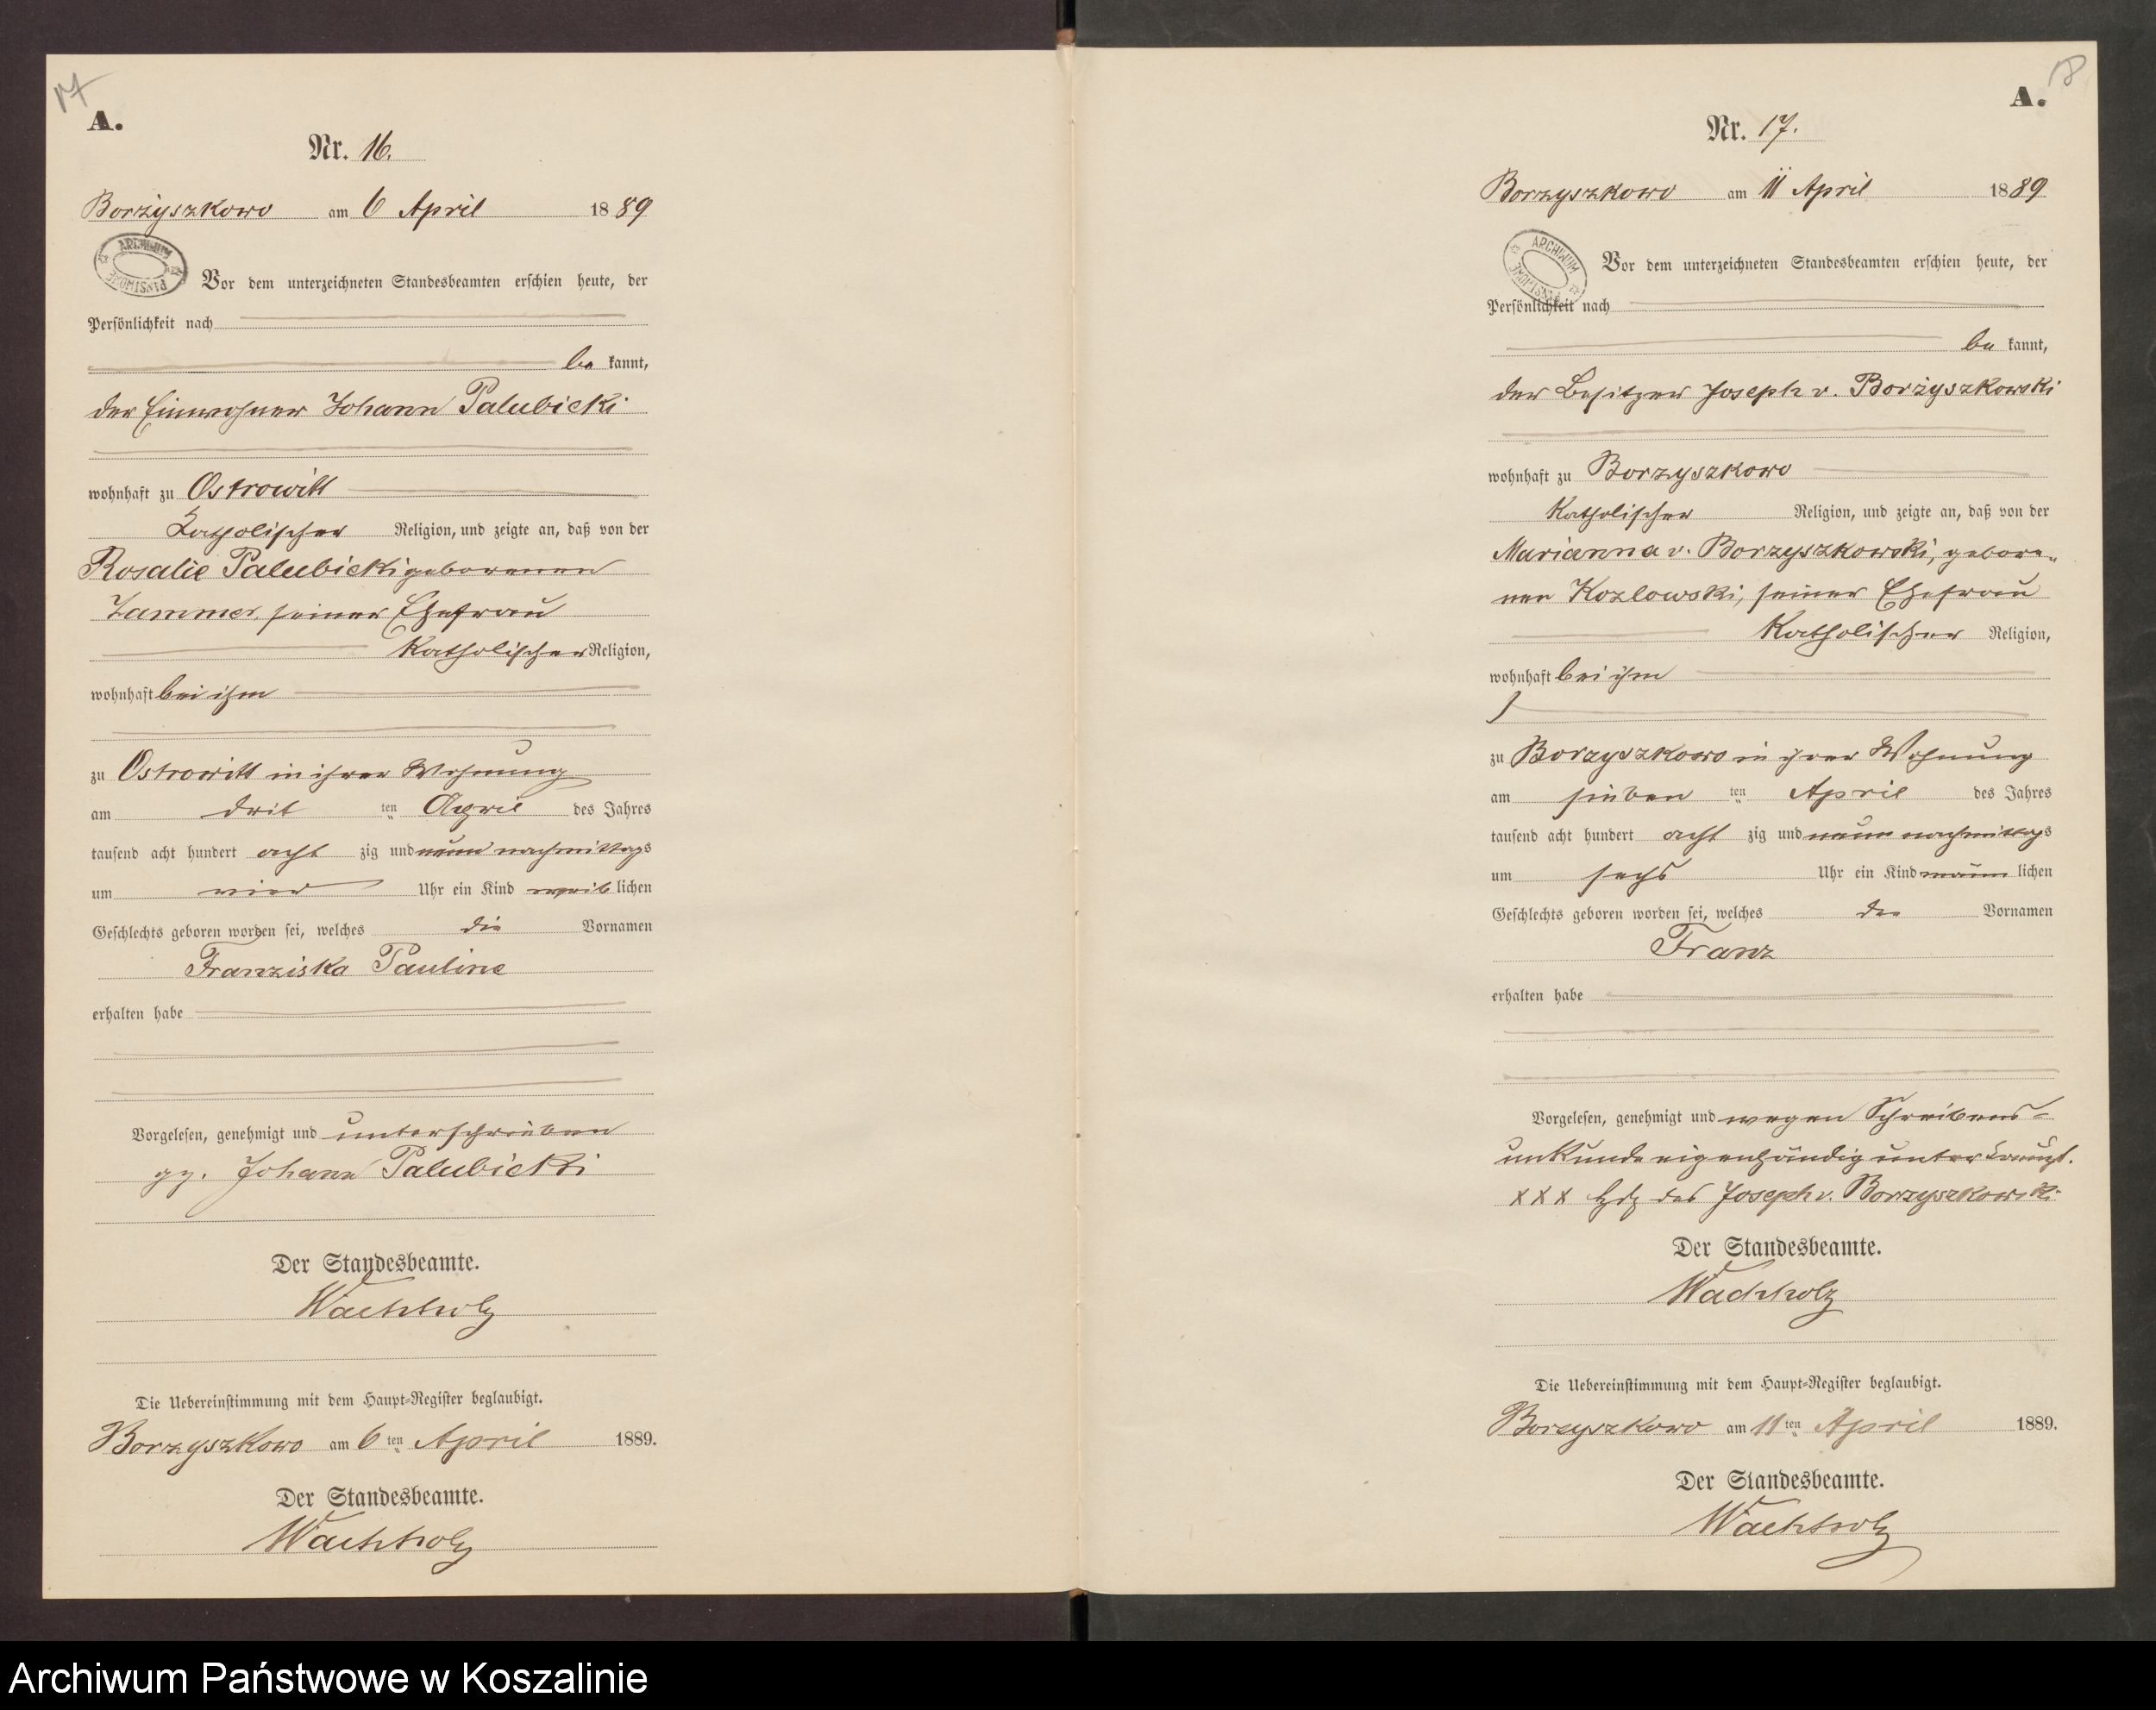 17
A.
Nr. 16.
Borzyszkowo am 6 April 1889
ARCHIWUM
PAŃSTWOWE
Vor dem unterzeichneten Standesbeamten erschien heute, der
Persönlichkeit nach
be kannt,
der Einwohner Johann Palubicki
wohnhaft zu Ostrowitt
katholischer Religion, und zeigte an, daß von der
Rosalie Palubicki geborenen
Jammer, seiner Ehefrau
katholischer Religion,
wohnhaft bei ihm
zu Ostrowitt in ihrer Wohnung
am drit ten April des Jahres
tausend acht hundert acht zig und neun nachmittags
um vier Uhr ein Kind weib lichen
Geschlechts geboren worden sei, welches die Vornamen
Franziska Pauline
erhalten habe
Vorgelesen, genehmigt und unterschrieben
gz. Johann Palubicki
Der Standesbeamte.
Wachholz
Die Uebereinstimmung mit dem Haupt-Register beglaubigt.
Borzyszkowo am 6 ten April 1889.
Der Standesbeamte.
Wachholz
18
A.
Nr. 17.
Borzyszkowo am 11 April 1889
ARCHIWUM
PAŃSTWOWE
Vor dem unterzeichneten Standesbeamten erschien heute, der
Persönlichkeit nach
be kannt,
der Besitzer Joseph v. Borzyszkowski
wohnhaft zu Borzyszkowo
katholischer Religion, und zeigte an, daß von der
Marianna v. Borzyszkowski, gebore-
nen Kozlowski, seiner Ehefrau
katholischer Religion,
wohnhaft bei ihm
zu Borzyszkowo in ihrer Wohnung
am sieben ten April des Jahres
tausend acht hundert acht zig und neun nachmittags
um sechs Uhr ein Kind männ lichen
Geschlechts geboren worden sei, welches den Vornamen
Franz
erhalten habe
Vorgelesen, genehmigt und wegen Schreibens-
unkunde eigenhändig unterkreuzt.
XXX Hdz des Joseph v. Borzyszkowski
Der Standesbeamte.
Wachholz
Die Uebereinstimmung mit dem Haupt-Register beglaubigt.
Borzyszkowo am 11 ten April 1889.
Der Standesbeamte.
Wachholz
Archiwum Państwowe w Koszalinie